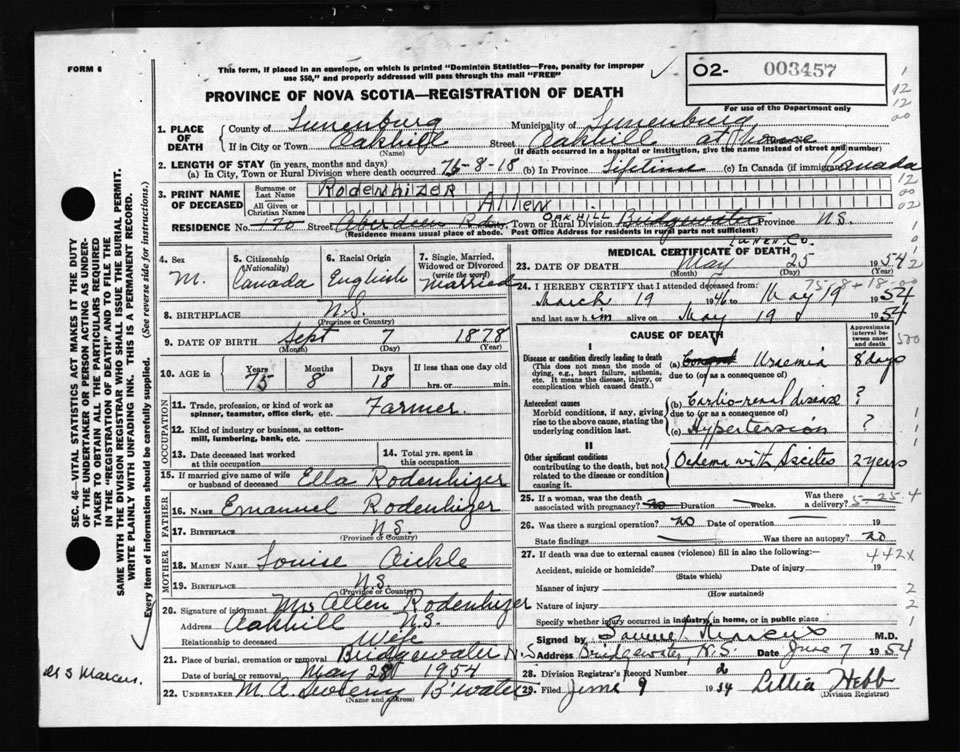 FORM 6
This form, if placed in an envelope, on which is printed "Dominion Statistics—Free, penalty for improper
use $50," and properly addressed will pass through the mail "FREE"
02- 003457
For use of the Department only
PROVINCE OF NOVA SCOTIA—REGISTRATION OF DEATH
1. PLACE OF DEATH { County of Lunenburg Municipality of Lunenburg
If in City or Town Oakhill (Name) Street Oakhill at home
(If death occurred in a hospital or institution, give the name instead of street and number)
2. LENGTH OF STAY (in years, months and days)
(a) In City, Town or Rural Division where death occurred 75-8-18 (b) In Province Lifetime (c) In Canada (if immigrant) Canada
3. PRINT NAME OF DECEASED { Surname or Last Name Rodenhizer
All Given or Christian Names Allen
RESIDENCE No. 170 Street Aberdeen Rd City, Town or Rural Division OAKHILL Bridgewater Province N.S.
(Residence means usual place of abode. Post Office Address for residents in rural parts not sufficient)
LUNEN. CO.
4. Sex M.
5. Citizenship (Nationality) Canada
6. Racial Origin English
7. Single, Married, Widowed or Divorced (write the word) Married
8. BIRTHPLACE N.S. (Province or Country)
9. DATE OF BIRTH Sept (Month) 7 (Day) 1878 (Year)
10. AGE in { Years 75 Months 8 Days 18 If less than one day old hrs. or min.
OCCUPATION
11. Trade, profession, or kind of work as spinner, teamster, office clerk, etc. Farmer.
12. Kind of industry or business, as cotton-mill, lumbering, bank, etc.
13. Date deceased last worked at this occupation
14. Total yrs. spent in this occupation
15. If married give name of wife or husband of deceased Ella Rodenhizer
FATHER
16. Name Emanuel Rodenhizer
17. Birthplace N.S. (Province or Country)
MOTHER
18. MAIDEN NAME Louise Aickle
19. BIRTHPLACE N.S. (Province or Country)
20. Signature of informant Mrs Allen Rodenhizer
Address Oakhill N.S.
Relationship to deceased Wife
21. Place of burial, cremation or removal Bridgewater N.S
Date of burial or removal May 28 1954
22. UNDERTAKER M. A. Sweeny B'water
(Name and address)
MEDICAL CERTIFICATE OF DEATH
23. DATE OF DEATH May (Month) 25 (Day) 1954 (Year)
75-8+18-00
24. I HEREBY CERTIFY that I attended deceased from:
March 19 1946 to May 19 1954
and last saw him alive on May 19 1954
CAUSE OF DEATH
Approximate interval between onset and death
I
Disease or condition directly leading to death (a) Uraemia 8 days
(This does not mean the mode of dying, e.g., heart failure, asthenia, etc. It means the disease, injury, or complication which caused death.)
due to (or as a consequence of)
Antecedent causes (b) Cardio-renal disease ?
Morbid conditions, if any, giving rise to the above cause, stating the underlying condition last.
due to (or as a consequence of)
(c) Hypertension ?
II
Other significant conditions Oedema with Ascites 2 years
contributing to the death, but not related to the disease or condition causing it.
25. If a woman, was the death associated with pregnancy? no Duration weeks. Was there a delivery?
5-25-4
26. Was there a surgical operation? no Date of operation 19
State findings Was there an autopsy? no
27. If death was due to external causes (violence) fill in also the following:—
442X
Accident, suicide or homicide? (State which) Date of injury 19
Manner of injury (How sustained)
Nature of injury
Specify whether injury occurred in industry, in home, or in public place
Signed by Samuel Marcus M.D.
Address Bridgewater, N.S. Date June 7 1954
28. Division Registrar's Record Number 2
29. Filed June 9 1954 Lillia Hebb
(Division Registrar)
SEC. 46—VITAL STATISTICS ACT MAKES IT THE DUTY
OF THE UNDERTAKER OR PERSON ACTING AS UNDER-
TAKER TO OBTAIN ALL THE PARTICULARS REQUIRED
IN THE "REGISTRATION OF DEATH" AND TO FILE THE
SAME WITH THE DIVISION REGISTRAR WHO SHALL ISSUE THE BURIAL PERMIT.
WRITE PLAINLY WITH UNFADING INK. THIS IS A PERMANENT RECORD.
Every item of information should be carefully supplied. (See reverse side for instructions.)
S Marcus.